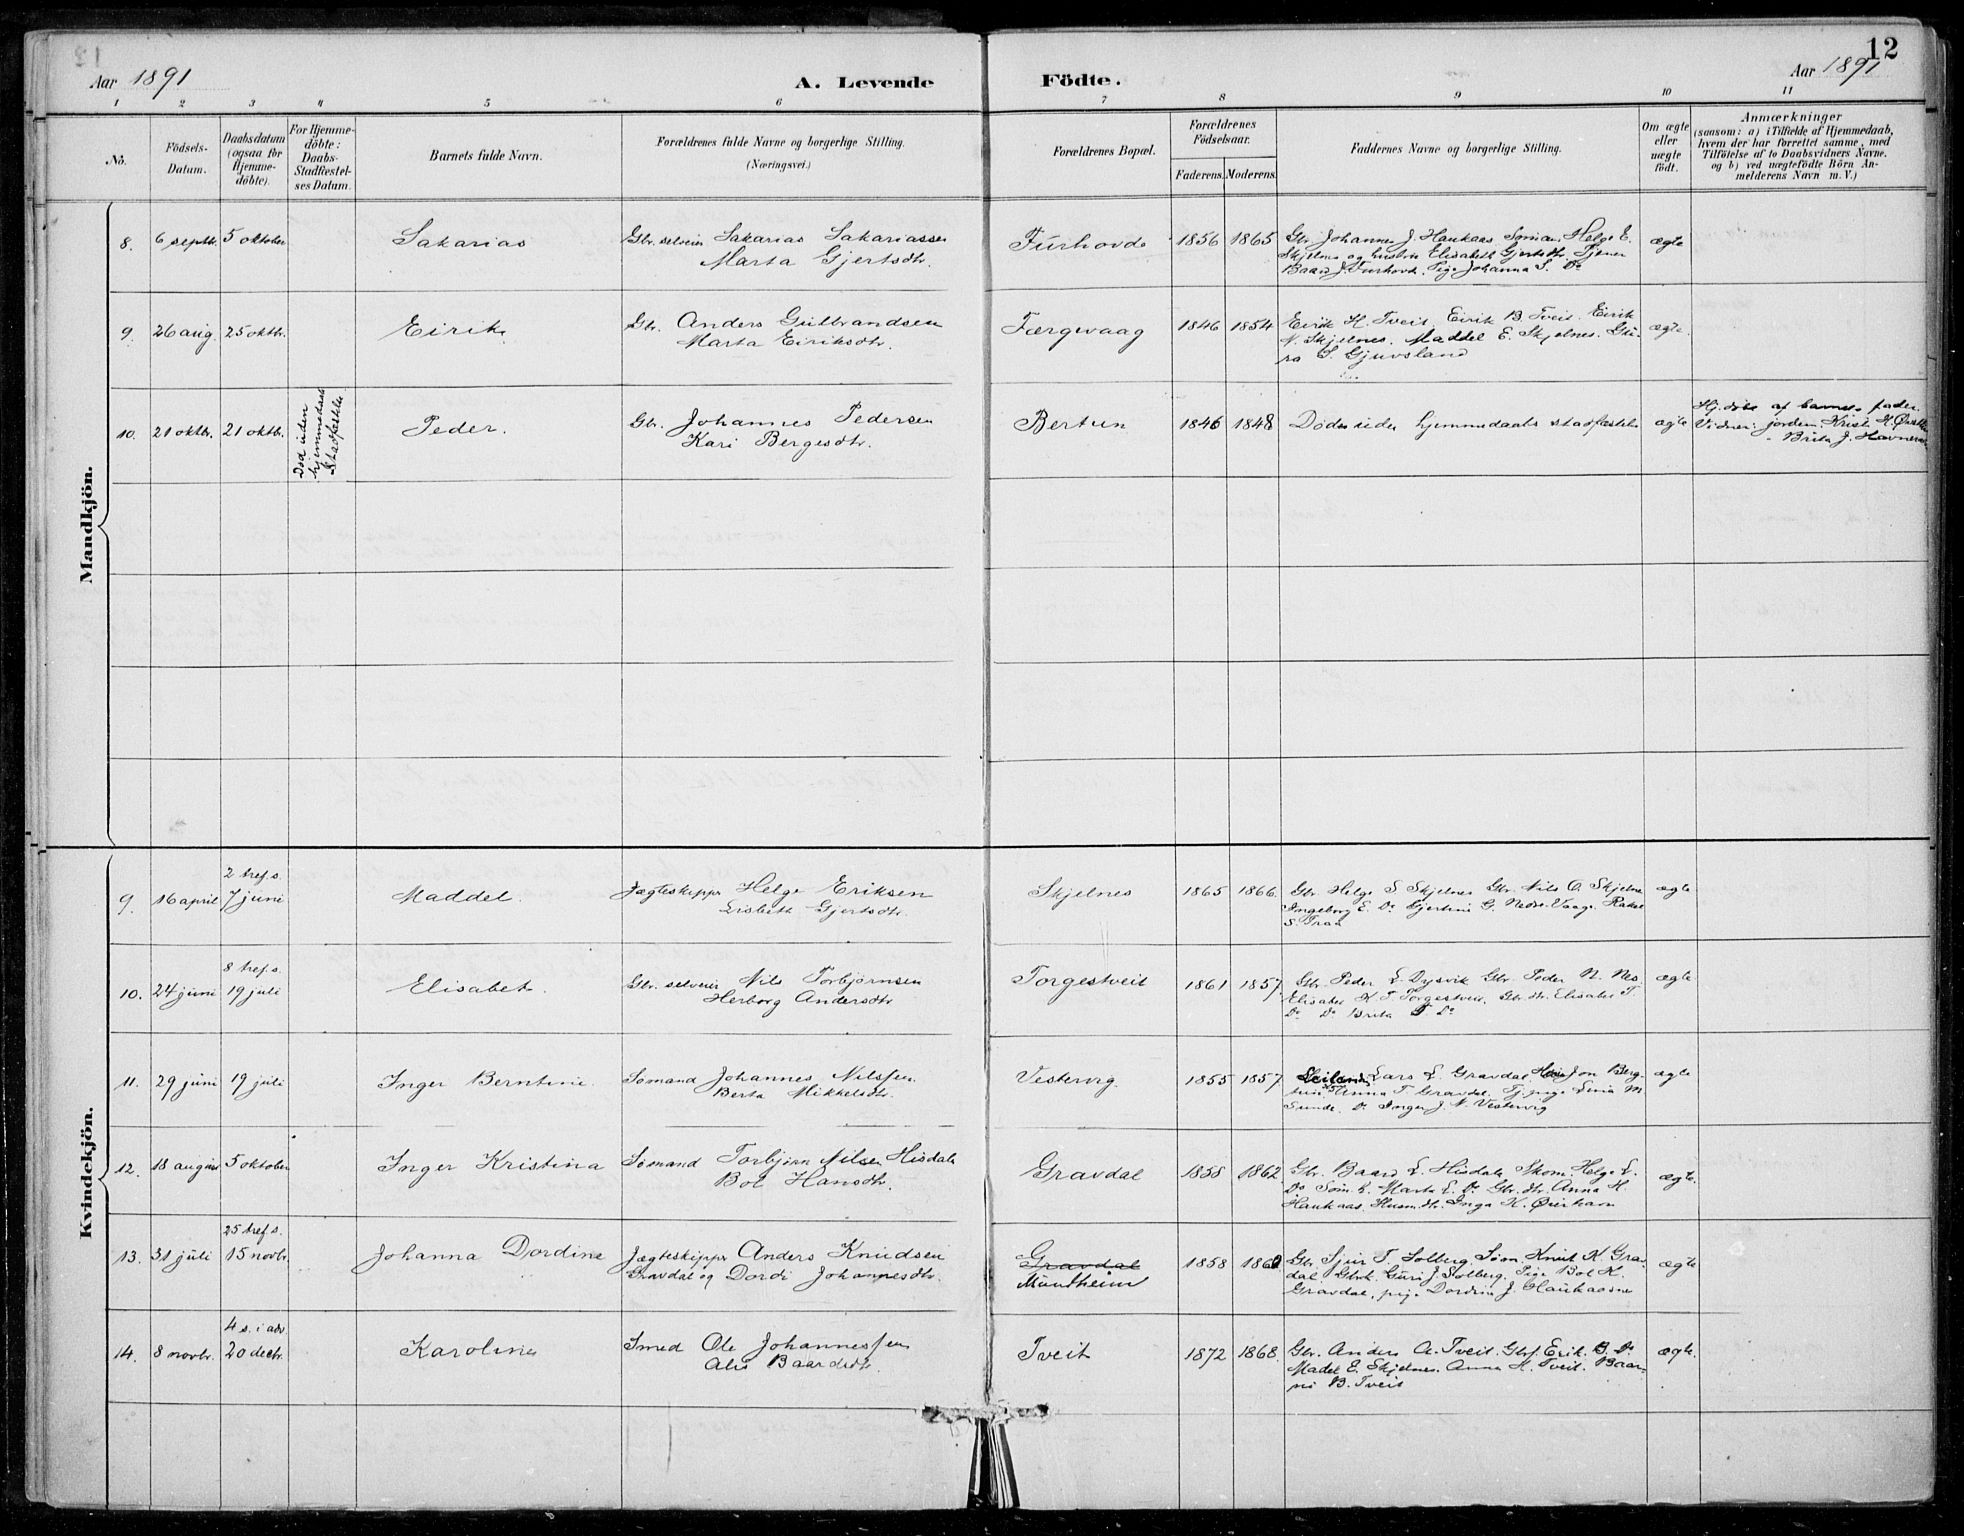 12
Aar 1891
A. Levende Födte.
Aar 1891
1 2 3 4 5 6 7 8 9 10 11
No.
Födsels-Datum.
Daabsdatum (ogsaa for Hjemme-döbte).
For Hjemme-döbte: Daabs-Stadfæstel-ses Datum.
Barnets fulde Navn.
Forældrenes fulde Navne og borgerlige Stilling.
(Næringsvei.)
Forældrenes Bopæl.
Forældrenes Födselsaar.
Faderens. Moderens.
Faddernes Navne og borgerlige Stilling.
Om ægte eller uægte födt.
Anmærkninger
(saasom: a) i Tilfælde af Hjemmedaab,
hvem der har forrettet samme, med
Tilföielse af to Daabsvidners Navne.
og b) ved uægtefödte Börn An-
melderens Navn m. V.)
Mandkjön.
8. 6 septbr. 5 oktober Sakarias Gbr. selveier Sakarias Sakariassen
Marta Gjertsdtr.
Furhovde 1856 1865 Gbr. Johannes J. Haukaas, Søman Helge E.
Skjelnes og hustru Elisabeth Gjertsdtr. Tjener
Baard J. Furhovd. Pige Johanna S. Do
ægte
9. 26 aug. 25 oktbr. Eirik Gbr. Anders Gulbrandsen
Marta Eiriksdtr.
Færgevaag 1846 1854 Eirik H. Tveit. Eirik B. Tveit. Eirik
N. Skjelnes. Maddel E. Skjelnes. Gu-
ro S. Gjuvsland
ægte
10. 21 oktbr. 21 oktbr. Død uden hjemmedaabs Stadfæstelse Peder. Gbr. Johannes Pedersen
Kari Bergesdtr.
Bertun 1846 1848 Døde uden hjemmedaabs stadfæstelse ægte
Hj.døbt af barnets fader.
Vidner: jordem. Kristi K.
" Brita J.
Kvindekjön.
9. 16 april 2 tref. s. 7 juni Maddel. Jægteskipper Helge Eriksen
Lisbeth Gjertsdtr.
Skjelnes 1865 1866 Gbr. Helge S. Skjelnes Gbr. Nils O. Skjelne
Ingeborg E. Do Gjertine G. Nedre-Vaage. Rakel
S. Traa
ægte
10. 24 juni 8 tref. s. 19 juli Elisabet. Gbr. selveier Nils Torbjørnsen
Herborg Andersdtr
Torgestveit 1861 1857 Gbr. Peder L. Dysvik Gbr. Peder N. Nes
Elisabet K. T. Torgestveit, Gbr. dtr. Elisabet T.
Do Do Brita T. Do
ægte
11. 29 juni 19 juli Inger Berntine. Sømand Johannes Nilssen
Berta Mikkelsdtr.
Vestervig. 1855 1857 Lars L. Gravdal, Jon Berg-
Anna T. Gravdal. Tj. pige Lina M
Sunde. Do Inger J. N. Vestervig
ægte
12. 18 august 5 oktober Inger Kristina Sømand Torbjørn Nilsen Hisdal
Bol Hansdtr.
Gravdal 1858 1862 Gbr. Baard L. Hisdal. Skom. Helge L.
Do Søm. k. Marta L. Do Gbr. dtr. Anna H.
Haukaas. Husm. dtr. Inga K. Øierhavn
ægte.
13. 31 juli 25 tref. s. 15 novbr. Johanna Dordine Jægteskipper Anders Knudsen
Gravdal og Dordi Johannesdtr.
Gravdal
Mundheim
1858 1860 Gbr. Sjur T. Solberg. Søm. Knut K. Gra-
dal. Gbrk. Guri J. Solberg. Pige Bol K.
Gravdal, pige Dordine J. Haukaasne
ægte
14. 8 novbr. 4 s. i adv 20 decbr. Karoline Smed Ole Johannessen
Alis Baardsdtr.
Tveit 1872 1868. Gbr. Anders A. Tveit. Gbr. Erik B. Do
Madel E. Skjelnes. Anna H. Tveit. Baar-
ni B. Tveit
ægte.